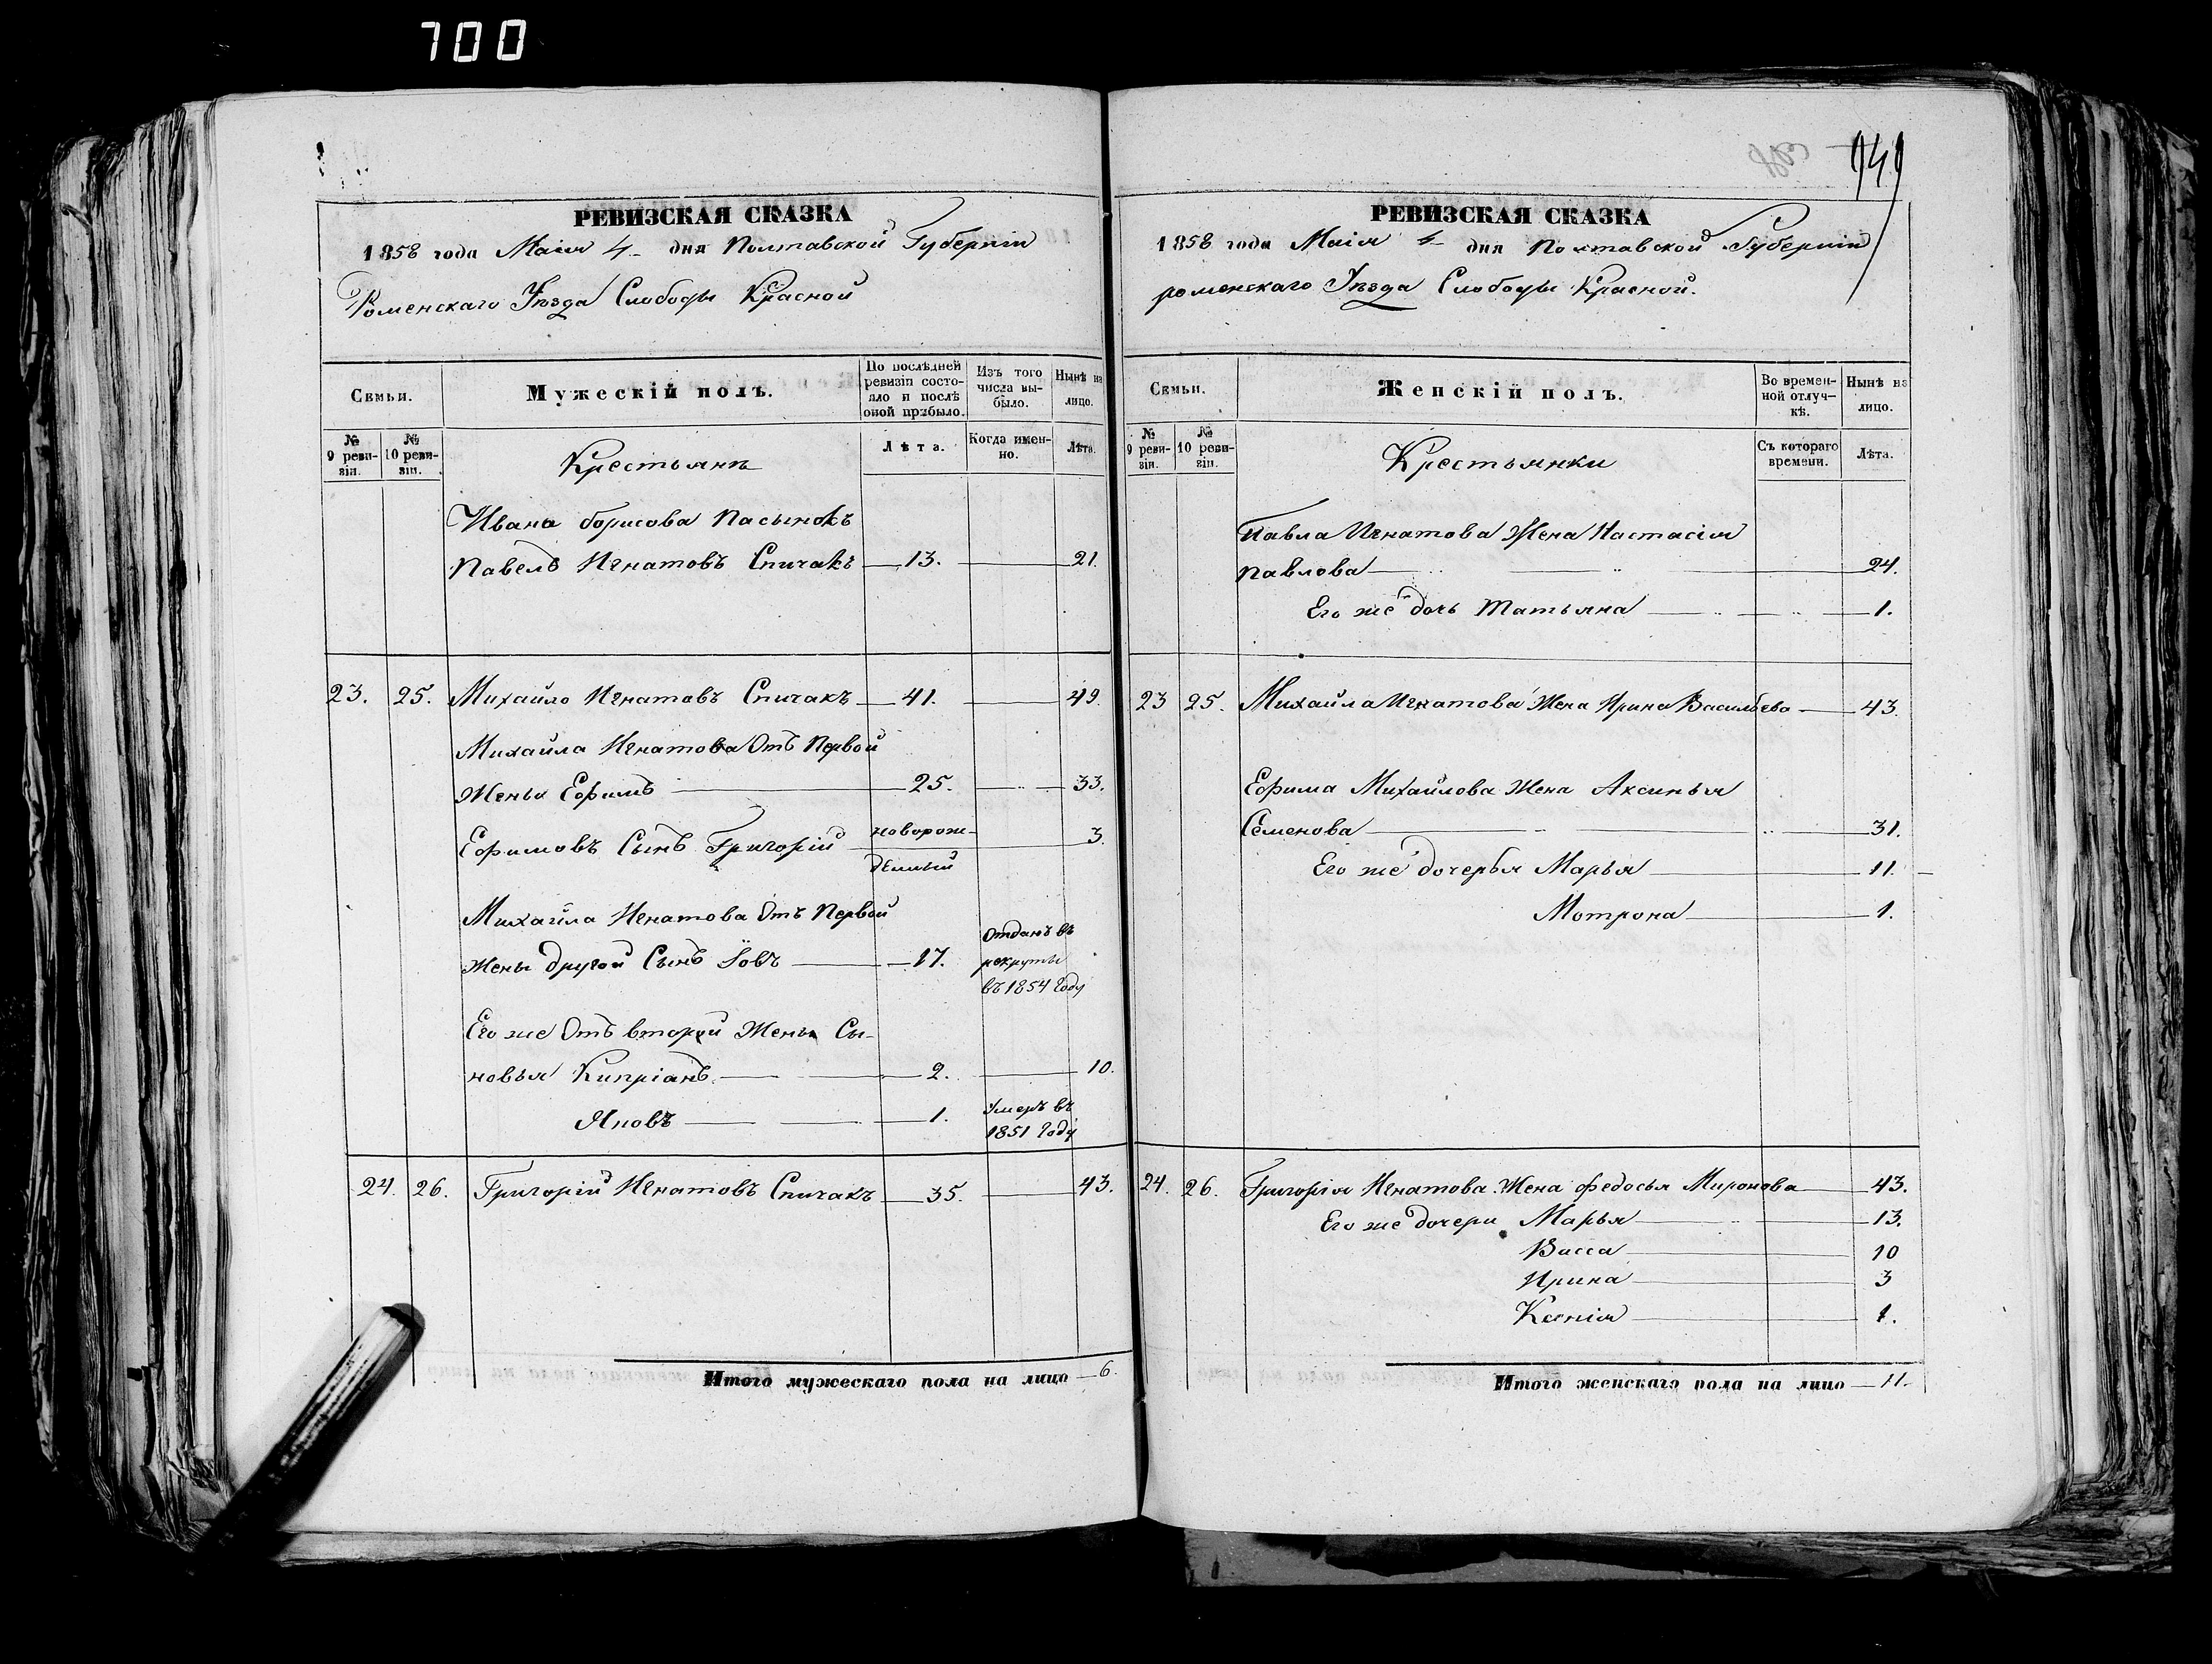 700
РЕВИЗСКАЯ СКАЗКА
1858 года Маія 4 дня Полтавской Губерніи
Роменскаго Уѣзда Слободы Красной
Семьи.
Мужескій полъ.
По послѣдней ревизіи состояло и послѣ оной прибыло.
Изъ того числа выбыло.
Нынѣ на лицо.
№ 9 ревизіи.
№ 10 ревизіи.
Крестьянъ
Лѣта.
Когда именно.
Лѣта.
Ивана борисова Пасынокъ
Павелъ Игнатовъ Спичакъ 13. 21.
23. 25. Михайло Игнатовъ Спичакъ 41. 49.
Михайла Игнатова Отъ Первой
Жены Ефимъ 25. 33.
Ефимовъ Сынъ Григорій новорож- 3.
денный
Михайла Игнатова Отъ Первой
Жены другой Сынъ Іовъ 17. Отданъ въ
рекруты
въ 1854 Году
Его же Отъ второй Жены Сы-
новья Кипріанъ 2. 10.
Яковъ 1. Умеръ въ
1851 Году
24. 26. Григорій Игнатовъ Спичакъ 35. 43.
Итого мужескаго пола на лицо 6.
949
РЕВИЗСКАЯ СКАЗКА
1858 года Маія 4 дня Полтавской Губерніи
роменскаго Уѣзда Слободы Красной.
Семьи.
Женскій полъ.
Во времен-
ной отлуч-
кѣ.
Нынѣ на
лицо.
№ 9 реви-
зіи.
№ 10 реви-
зіи.
Крестьянки
Съ котораго
времени.
Лѣта.
Павла Игнатова Жена Настасія
Павлова 24.
Его же дочь Татьяна 1.
23 25. Михайла Игнатова Жена Ирина Васильева 43.
Ефима Михайлова Жена Аксинья
Семенова 31.
Его же дочерья Марья 11.
Мотрона 1.
24. 26. Григорія Игнатова Жена Федосья Миронова 43.
Его же дочери Марья 13.
Васса 10
Ирина 3
Ксенія 1.
Итого женскаго пола на лицо 11.